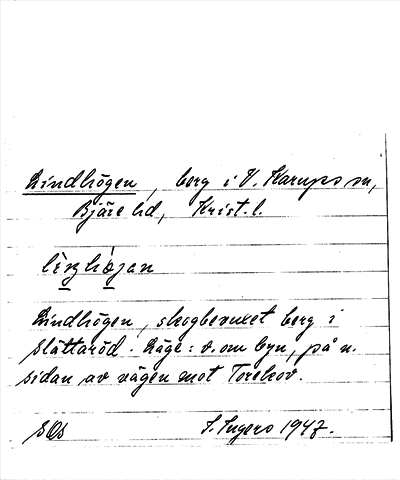 Lindhögen, berg i V. Karups sn,
Bjäre hd, Krist. l.
Lindhögen, skogbevuxet berg i
Slättaröd. Läge: v. om byn, på n.
sidan av vägen mot Torekov.
S. Ingers 1947.